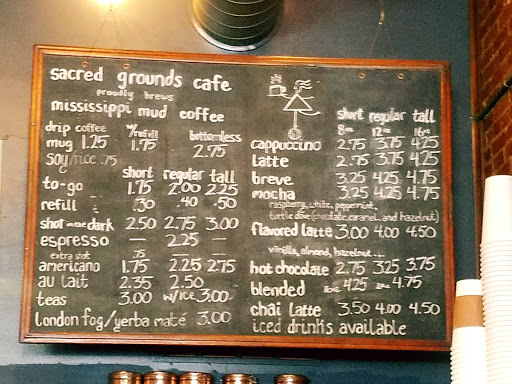 sacred grounds cafe
proudly brews
mississippi mud coffee
drip coffee w/refill bottomless
mug 1.25 1.75 2.75
soy/rice .75
short regular tall
to-go 1.75 2.00 2.25
refill .30 .40 .50
shot in the dark 2.50 2.75 3.00
espresso — 2.25 —
extra shot .75
americano 1.75 2.25 2.75
au lait 2.35 2.50
teas 3.00 w/ice 3.00
london fog/yerba maté 3.00
short regular tall
8oz 12oz 16oz
cappuccino 2.75 3.75 4.25
latte 2.75 3.75 4.25
breve 3.25 4.25 4.75
mocha 3.25 4.25 4.75
raspberry, white, peppermint,
turtle dove (chocolate, caramel, and hazelnut)
flavored latte 3.00 4.00 4.50
vanilla, almond, hazelnut...
hot chocolate 2.75 3.25 3.75
blended 16oz 4.25 4.75
chai latte 3.50 4.00 4.50
iced drinks available